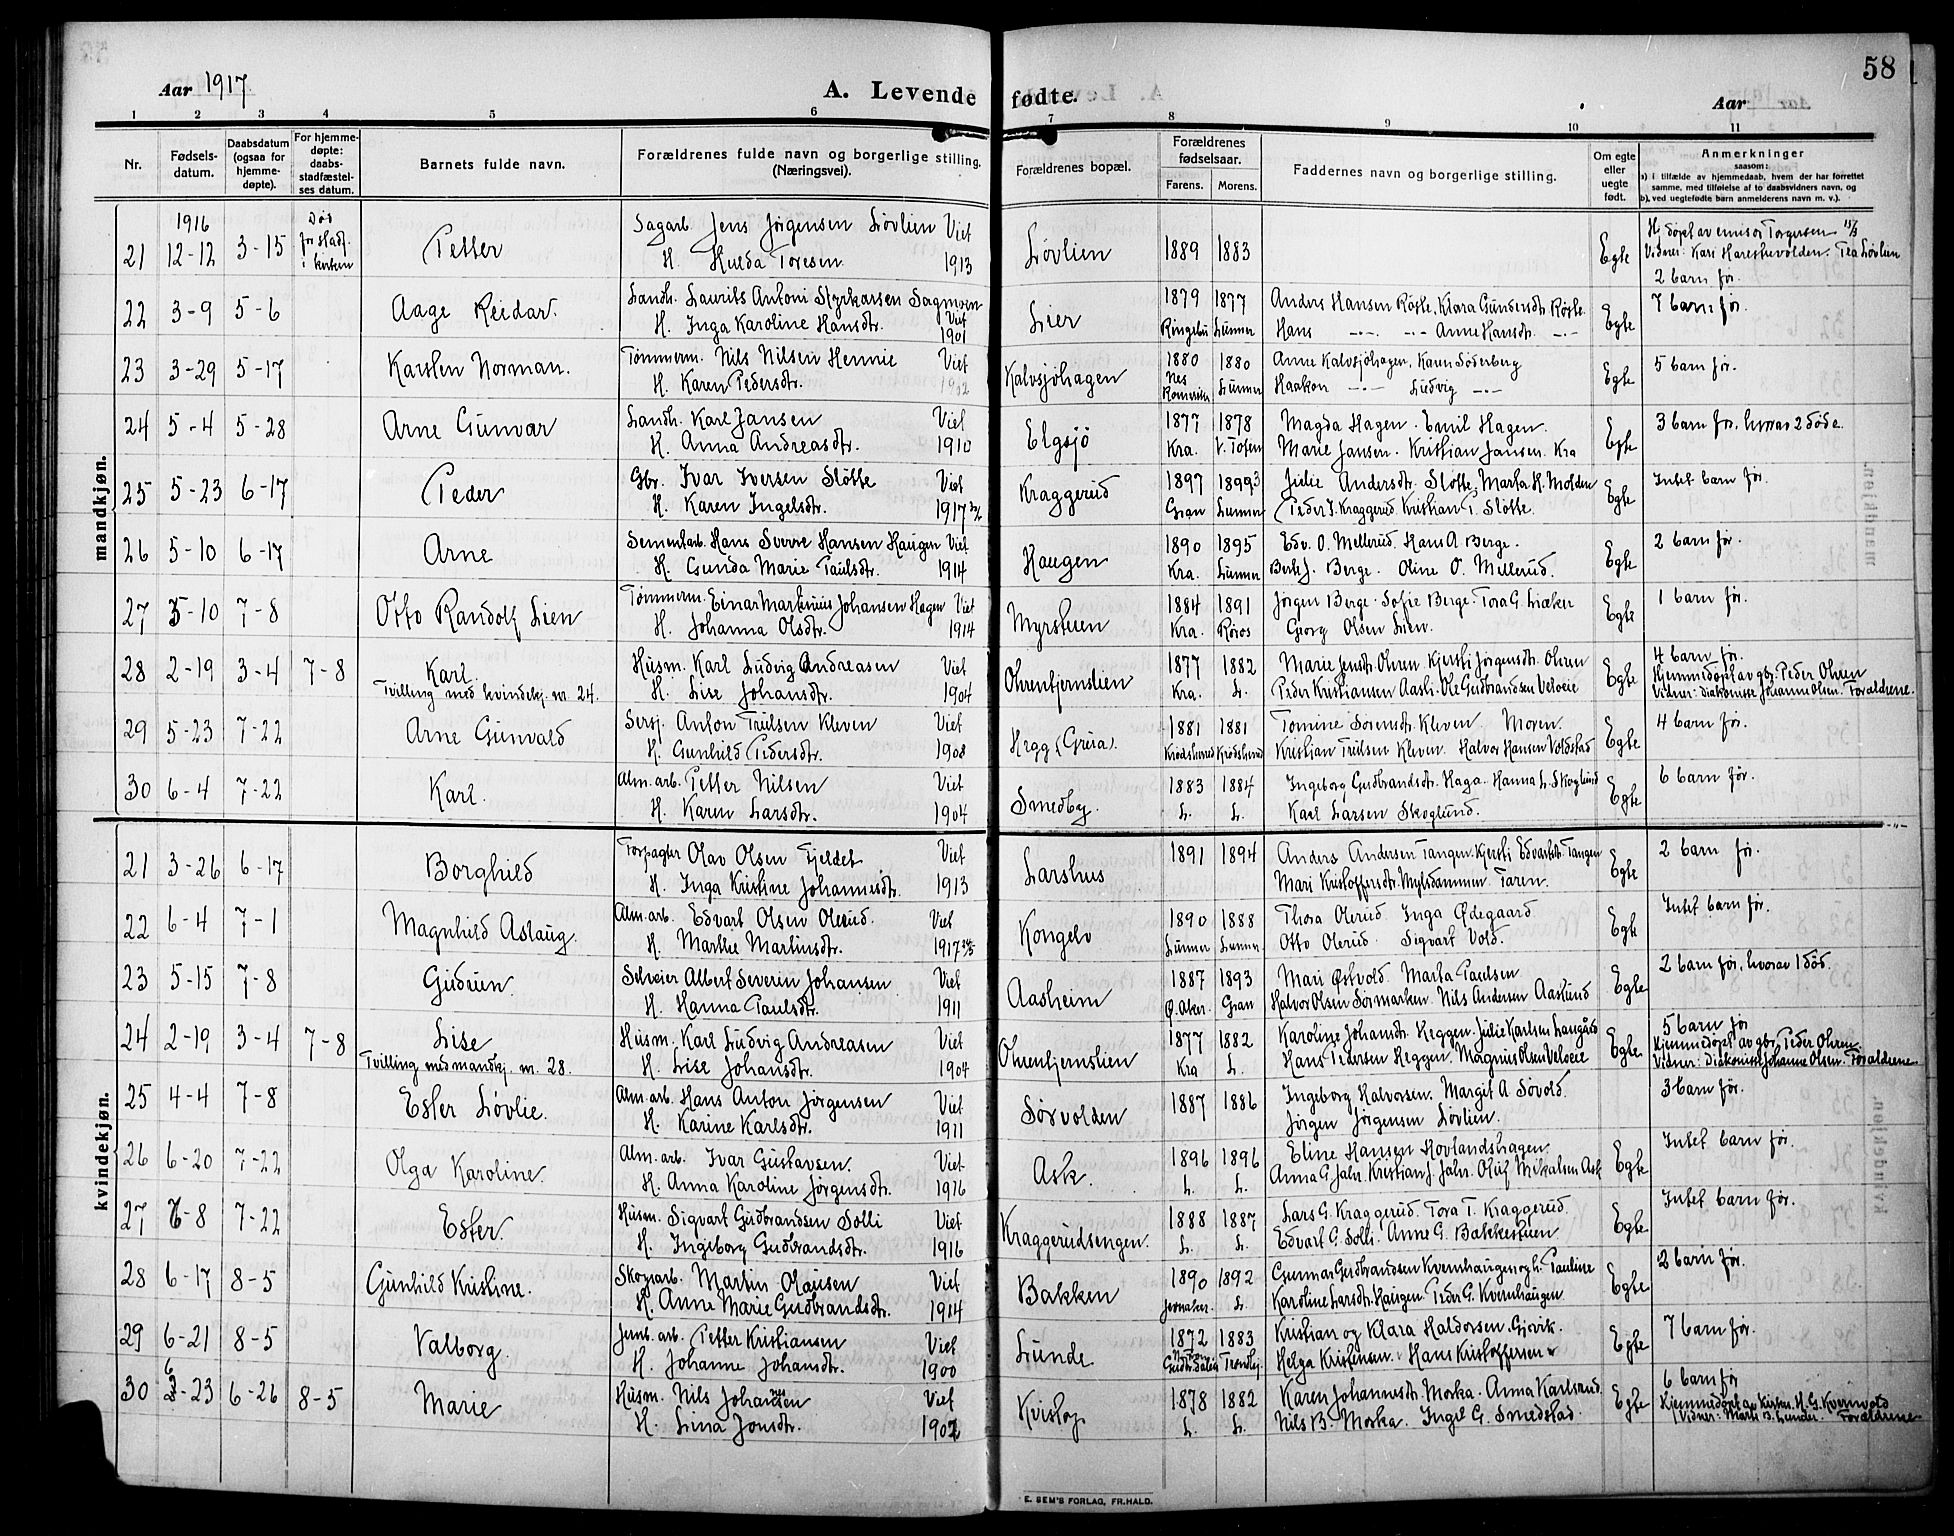 58
Aar 1917
A. Levende fødte.
Aar
1 2 3 4 5 6 7 8 9 10 11
Nr.
Fødsels-datum.
Daabsdatum (ogsaa for hjemme-døpte).
For hjemme-døpte: daabs-stadfæstel-ses datum.
Barnets fulde navn.
Forældrenes fulde navn og borgerlige stilling. (Næringsvei).
Forældrenes bopæl.
Forældrenes fødselsaar.
Farens. Morens.
Faddernes navn og borgerlige stilling.
Om egte eller uegte født.
Anmerkninger
saasom:
a) i tilfælde av hjemmedaab, hvem der har forrettet samme, med tilføielse af to daabsvidners navn, og
b) ved uegtefødte barn anmelderens navn m. v.).
mandkjøn.
1916
21 12-12 3-15 Død før stadf. i kirken Petter Sagarb. Jens Jørgensen Løvlien Viet
H. Hulda Toresen 1913 Løvlien 1889 1883 Egte H. døpt av emisør Torgersen 15/3
Vidner: Kari Harestuvolden. Tea Løvlien
2 barn før.
22 3-9 5-6 Aage Reidar. Landh. Laurits Antoni Styrkarsen Sagmoen Viet
H. Inga Karoline Hansdtr. 1901 Lier 1879 1877
Ringebu Lunner Anders Hansen Røste, Klara Gundersdtr. Røste.
Hans —"— —"— Anne Hansdtr. —"— Egte 7 barn før.
23 3-29 5-17 Karsten Norman. Tømmerm. Nils Nilsen Hennie Viet
H. Karen Pedersdtr. 1902 Kalvsjøhagen 1880 1880
Nes Romerike Lunner Anne Kalvsjøhagen, Karen Søderberg
Haakon —"— Ludvig —"— Egte 5 barn før.
24 5-4 5-28 Arne Gunvar Landh. Karl Jansen Viet
H. Anna Andreasdtr. 1910 Elgsjø 1877 1878
Kra. V. Toten Magda Hagen. Emil Hagen.
Marie Jansen. Kristian Jansen. Kra Egte 3 barn før, hvorav 2 døde.
25 5-23 6-17 Peder Gbr. Ivar Iversen Sløtte Viet
H. Karen Ingelsdtr. 1917 Kraggerud 1897 18993
Gran Lunner Julie Andersdtr. Sløtte, Marta H. Molden
Peder I. Kraggerud. Kristian P. Sløtte. Egte Intet barn før.
26 5-10 6-17 Arne Sementarb. Hans Sverre Hansen Haugen Viet
H. Gunda Marie Paulsdtr. 1914 Haugen 1890 1895
Kra. Lunner Edv. O. Mellerud. Hans A. Berge.
Berte J. Berge. Oline O. Mellerud. Egte 2 barn før.
27 5-10 7-8 Otto Randolf Lien Tømmerm. Einar Martinius Johansen Hagen Viet
H. Johanna Olsdtr. 1914 Myrstuen 1884 1891
Kra. Røros Jørgen Berge. Sofie Berge. Tora G.
Georg Olsen Lien. Egte 1 barn før.
28 2-19 3-4 7-8 Karl. Husm. Karl Ludvig Andreasen Viet
Tvilling med kvindekj. nr. 24. H. Lise Johansdtr. 1904 Ohrentjernslien 1877 1882
Kra. L. Marie Jensdtr. Ohren. Kjersti Jørgensdtr. Ohren
Peder Kristiansen Aasli. Ole Gudbrandsen Velo Egte 4 barn før.
Hjemmedøpt av gbr. Peder Ohren
Vidner: Diakonisse Johanne Olsen. Forældrene.
29 5-23 7-22 Arne Gunvald Sersj. Anton Paulsen Kleven Viet
H. Gunhild Pedersdtr. 1908 Hegg (Grua). 1881 1881
Krødsherred Krødsherred Tomine Sørensdtr. Kleven. Moren.
Kristian Kleven. Halvor Hansen Voldstad Egte 4 barn før.
30 6-4 7-22 Karl. Alm. arb. Petter Nilsen Viet
H. Karen Larsdtr. 1904 Smedby. 1883 1884
L. L. Ingeborg Gudbrandsdtr. Haga. Hanna L. Skoglund
Karl Larsen Skoglund. Egte 6 barn før.
kvindekjøn.
21 3-26 6-17 Borghild Forpagter Olav Olsen Fjeldet Viet
H. Inga Kristine Johannesdtr. 1913 Larshus 1891 1894 Anders Andersen Tangen. Kjersti Edvartsdtr. Tangen
Mari Kristoffersdtr. Mylsdammen. Faren. Egte 2 barn før.
22 6-4 7-1 Magnhild Aslaug. Alm. arb. Edvart Olsen Olerud. Viet
H. Marthe Martinsdtr. 1917 Kongelv 1890 1888
Lunner Lunner Thora Olerud. Inga Ødegaard
Otto Olerud. Sigvart Vold. Egte Intet barn før.
23 5-15 7-8 Gudrun. Selveier Albert Severin Johansen Viet
H. Hanna Paulsdtr. 1911 Aasheim 1887 1893
Ø. Aker. Gran Mari Østvold. Marta Paulsen
Halvor Olsen Sørmarken. Nils Andersen Aaslund Egte 2 barn før, hvorav 1 død.
24 2-19 3-4 7-8 Lise Husm. Karl Ludvig Andreasen Viet
Tvilling med mandkj. nr. 28. H. Lise Johansdtr. 1904 Ohrentjernslien 1877 1882
Kra L. Karoline Johansdtr. Heggen. Julie Karlsen Langård
Hans Pedersen Heggen. Magnus Olsen Velo Egte 5 barn før
Hjemmedøpt av gbr. Peder Ohren.
Vidner: Diakonisse Johanne Olsen. Forældrene
25 4-4 7-8 Ester Løvlie. Alm. arb. Hans Anton Jørgensen Viet
H. Karine Karlsdtr. 1911 Sørvolden 1887 1886 Ingeborg Halvorsen. Margit A. Søvold.
Jørgen Jørgensen Løvlien. 3 barn før.
26 6-20 7-22 Olga Karoline. Alm. arb. Ivar Gustavsen. Viet
H. Anna Karoline Jørgensdtr. 1916 Ask. 1896 1896
L. L. Eline Hansen Hovlandshagen.
Anna G. Jahr. Kristian J. Jahr. Oluf Mikalsen Ask Egte Intet barn før.
27 6-8 7-22 Ester. Husm. Sigvart Gudbrandsen Solli Viet
H. Ingeborg Gudbrandsdtr. 1916 Kraggerudsengen. 1888 1887
L. L. Lars G. Kraggerud. Tora T. Kraggerud.
Edvart G. Solli. Anne G. Bakkestuen Egte Intet barn før.
28 6-17 8-5 Gunhild Kristine. Skogsarb. Martin Olausen Viet
H. Anne Marie Gudbrandsdtr. 1914 Bakken 1890 1892
Jevnaker. L. Gunnar Gudbrandsen Kvernhaugen og h. Pauline
Karoline Larsdtr. Haugen. Peder G. Kvernhaugen. Egte 2 barn før.
29 6-21 8-5 Valborg. Jernb. arb. Petter Kristiansen Viet
H. Johanne Johansdtr. 1900 Lunde 1872 1883
N. Fron Gudbr. dalen Trondhj. Kristian og Klara Haldorsen. Gjøvik.
Helga Kristensen. Hans Kristoffersen " Egte 7 barn før.
30 6-23 6-26 8-5 Marie Husm. Nils Johannesen Viet
H. Lina Jonsdtr. 1902 Kvistop 1878 1882
L. L. Karen Johannesdtr. Morka. Anna Karlsrud
Nils B. Morka. Ingel G. Smedstad. Egte 6 barn før
Hjemmedøpt av kirkes. H. G. Kvernvold
Vidner: Marti B. Lunder. Forældrene
E. SEM'S FORLAG, FR.HALD.